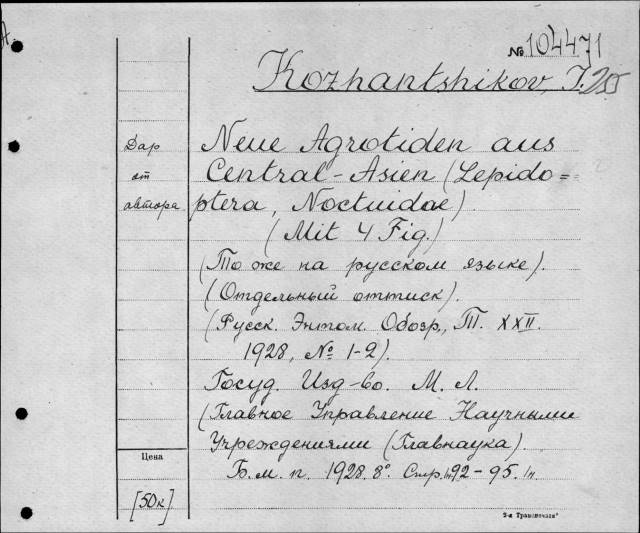 А.
№ 104471
Kozhantshikov, I.
Дар
от
автора
Neue Agrotiden aus
Central-Asien (Lepido=
ptera, Noctuidae)
(Mit 4 Fig.)
(То же на русском языке).
(Отдельный оттиск).
(Русск. Энтом. Обозр., Т. XXII.
1928, № 1-2).
Госуд. Изд-во. М. Л.
(Главное Управление Научными
Учреждениями (Главнаука).
Б. м. п. 1928. 8°. Стр. 192-95.
Цена
[50к]